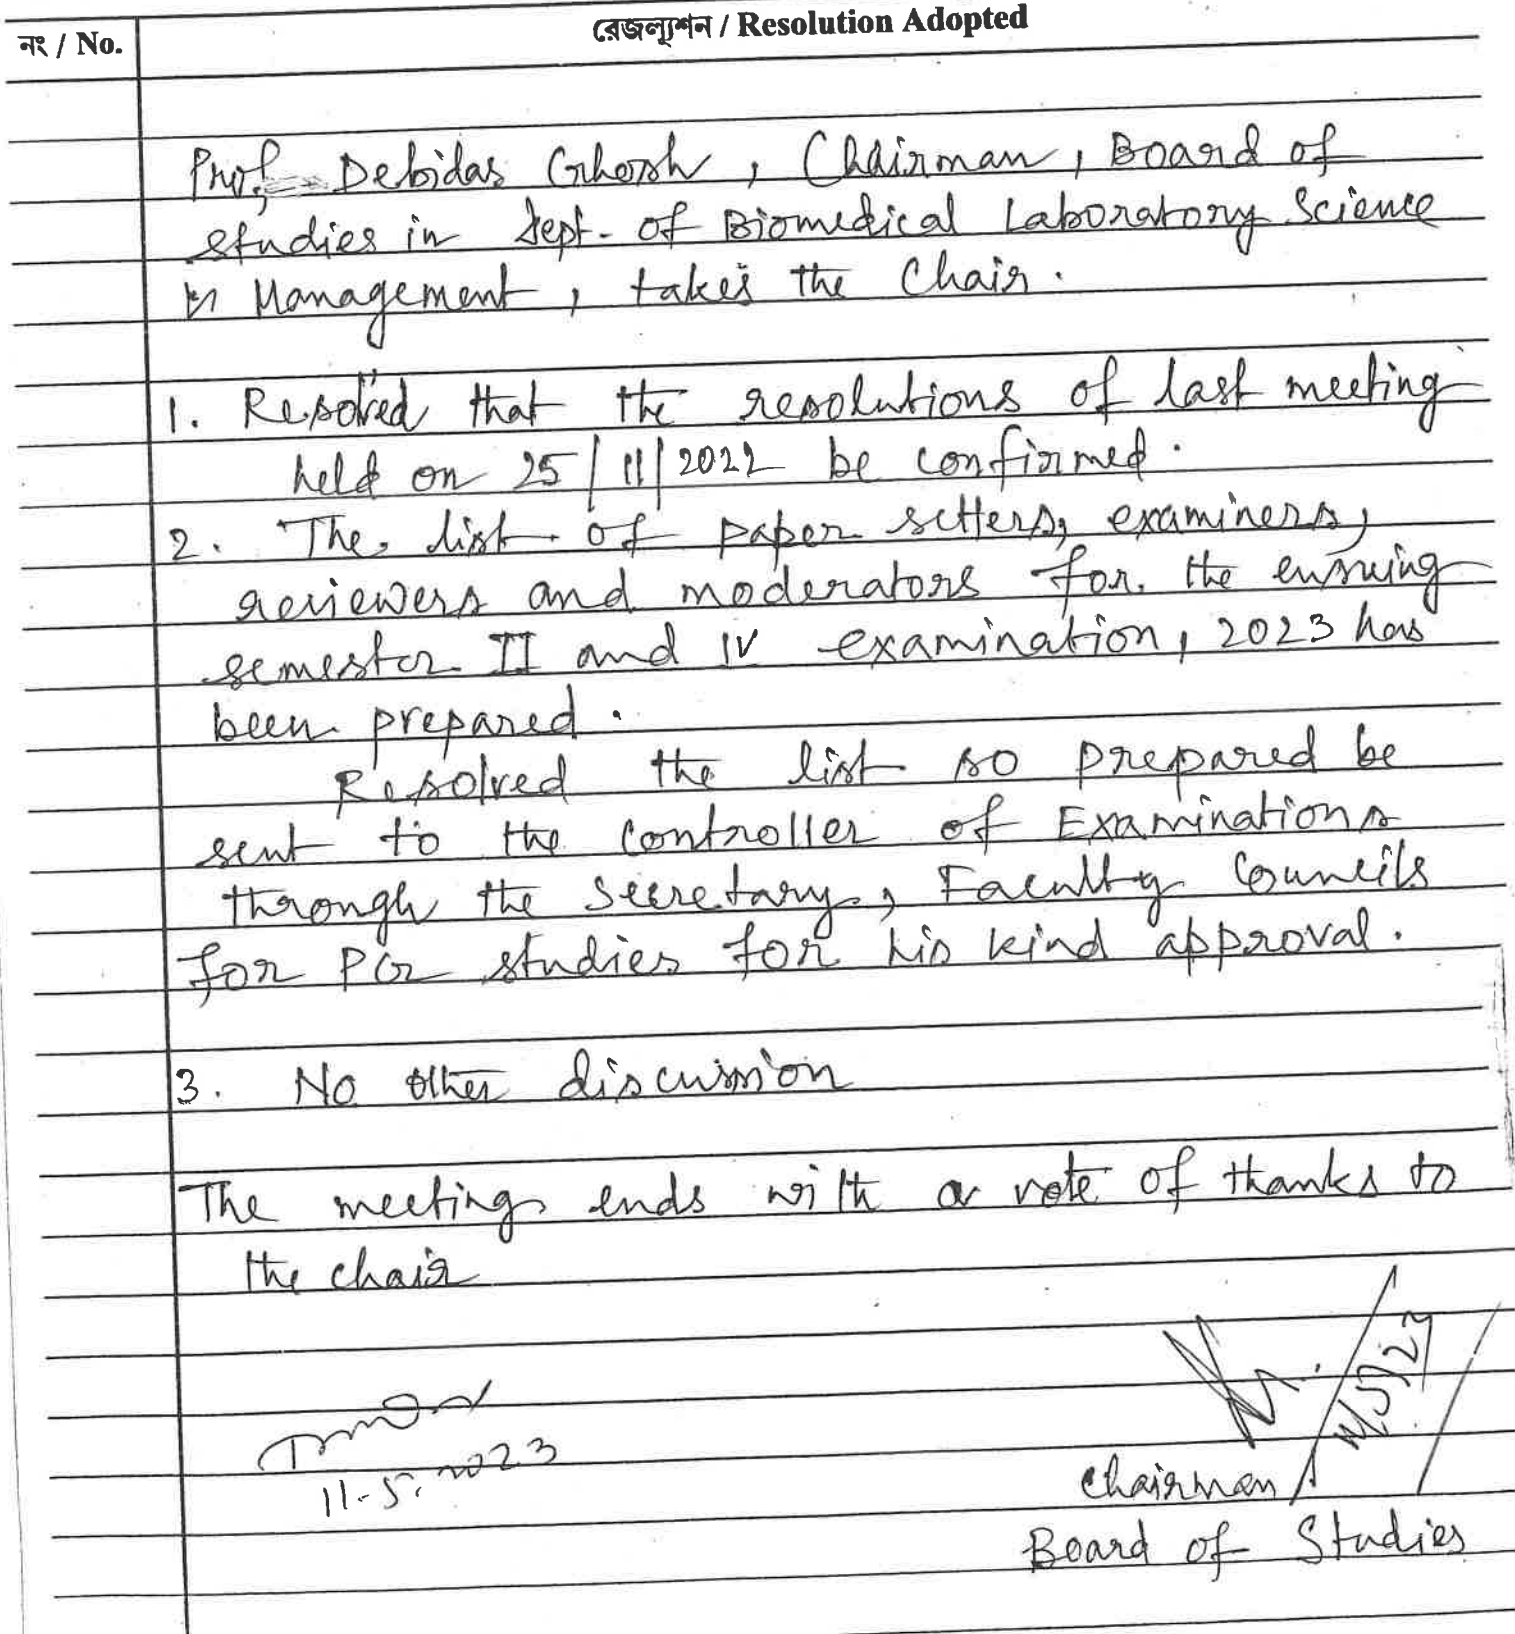 নং / No.
রেজল্যুশন / Resolution Adopted
Prof. Debidas Ghosh, Chairman, Board of
studies in Dept. of Biomedical Laboratory Science
& Management, takes the Chair.
1. Resolved that the resolutions of last meeting
held on 25/11/2022 be confirmed.
2. The list of paper setters, examiners,
reviewers and moderators for the ensuing
semester II and IV examination, 2023 has
been prepared.
Resolved the list so prepared be
sent to the Controller of Examinations
through the Secretary, Faculty Councils
for PG studies for his kind approval.
3. No other discussion
The meeting ends with a vote of thanks to
the chair
11-5-2023
Chairman
Board of Studies